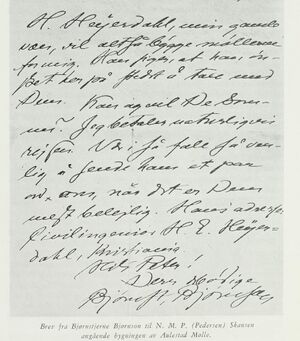 H. Heyerdahl, min gamle
ven, vil altså bygge møllen
for mig. Han siger, at han in-
tet her på stedet å tale med
Dem. Kan og vil De kom-
me? Jeg betaler naturligvis
rejsen. Vil i så fall få ven-
lig å sende ham et par
ord om, når det er Dem
mest belejlig. Hans adresse
Civilingeniør H. E. Heyer-
dahl, Kristiania.
Deres
Bjørnst. Bjørnson
Brev fra Bjørnstjerne Bjørnson til N. M. P. (Pedersen) Skansen
angående bygningen av Aulestad Mølle.